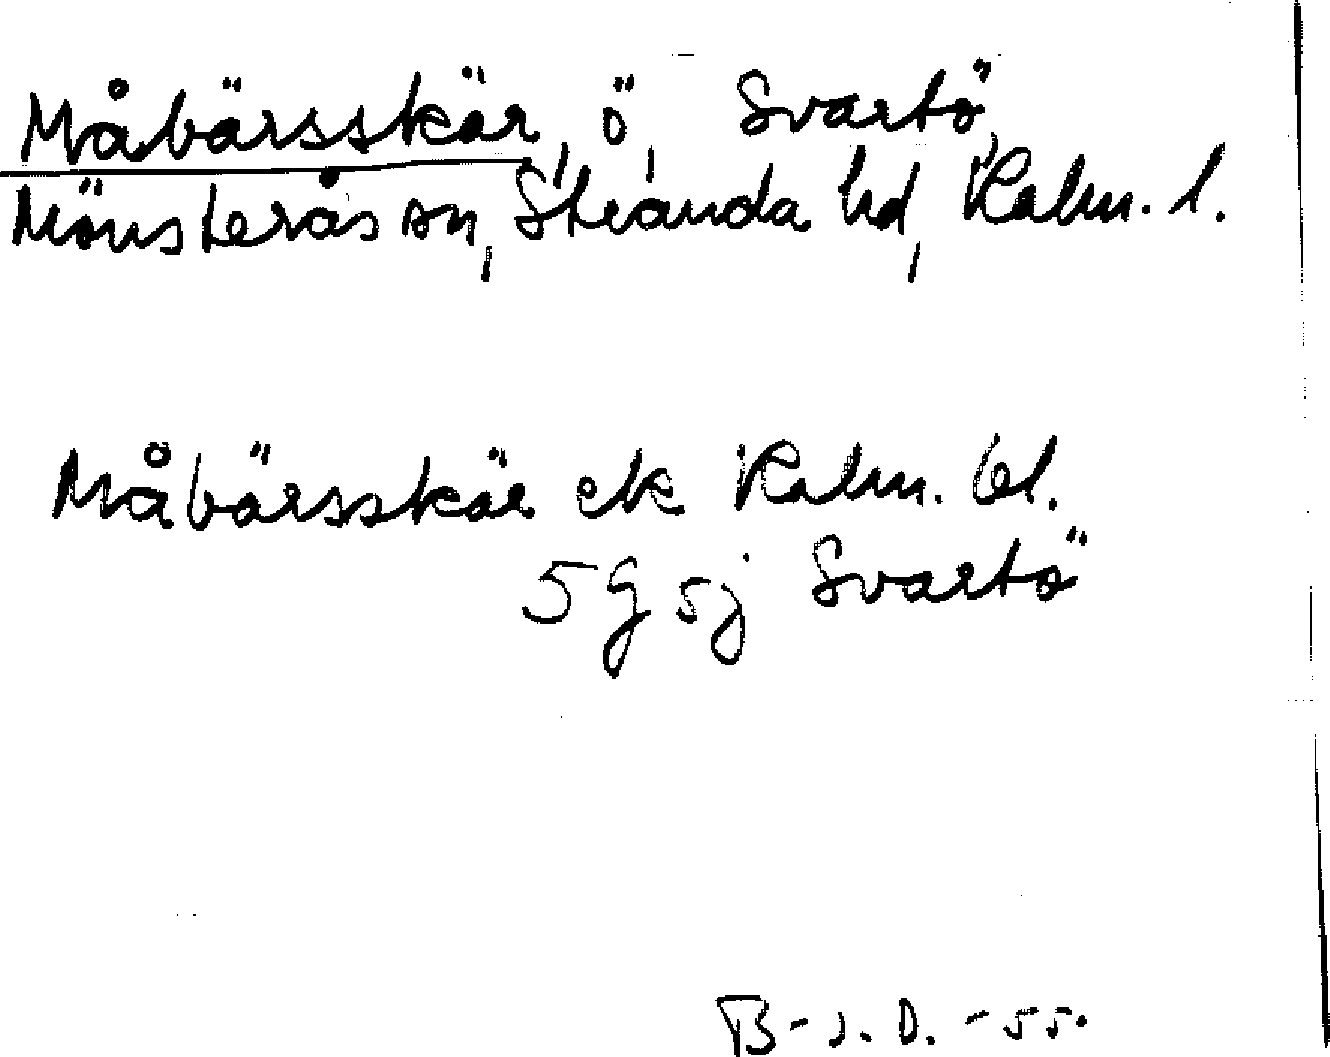 Måbärsskär, ö, Svartö,
Mönsterås sn, Stranda hd, Kalm. l.
Måbärsskär ek Kalm. bl.
5 g sj Svartö
B-J. D. -55.